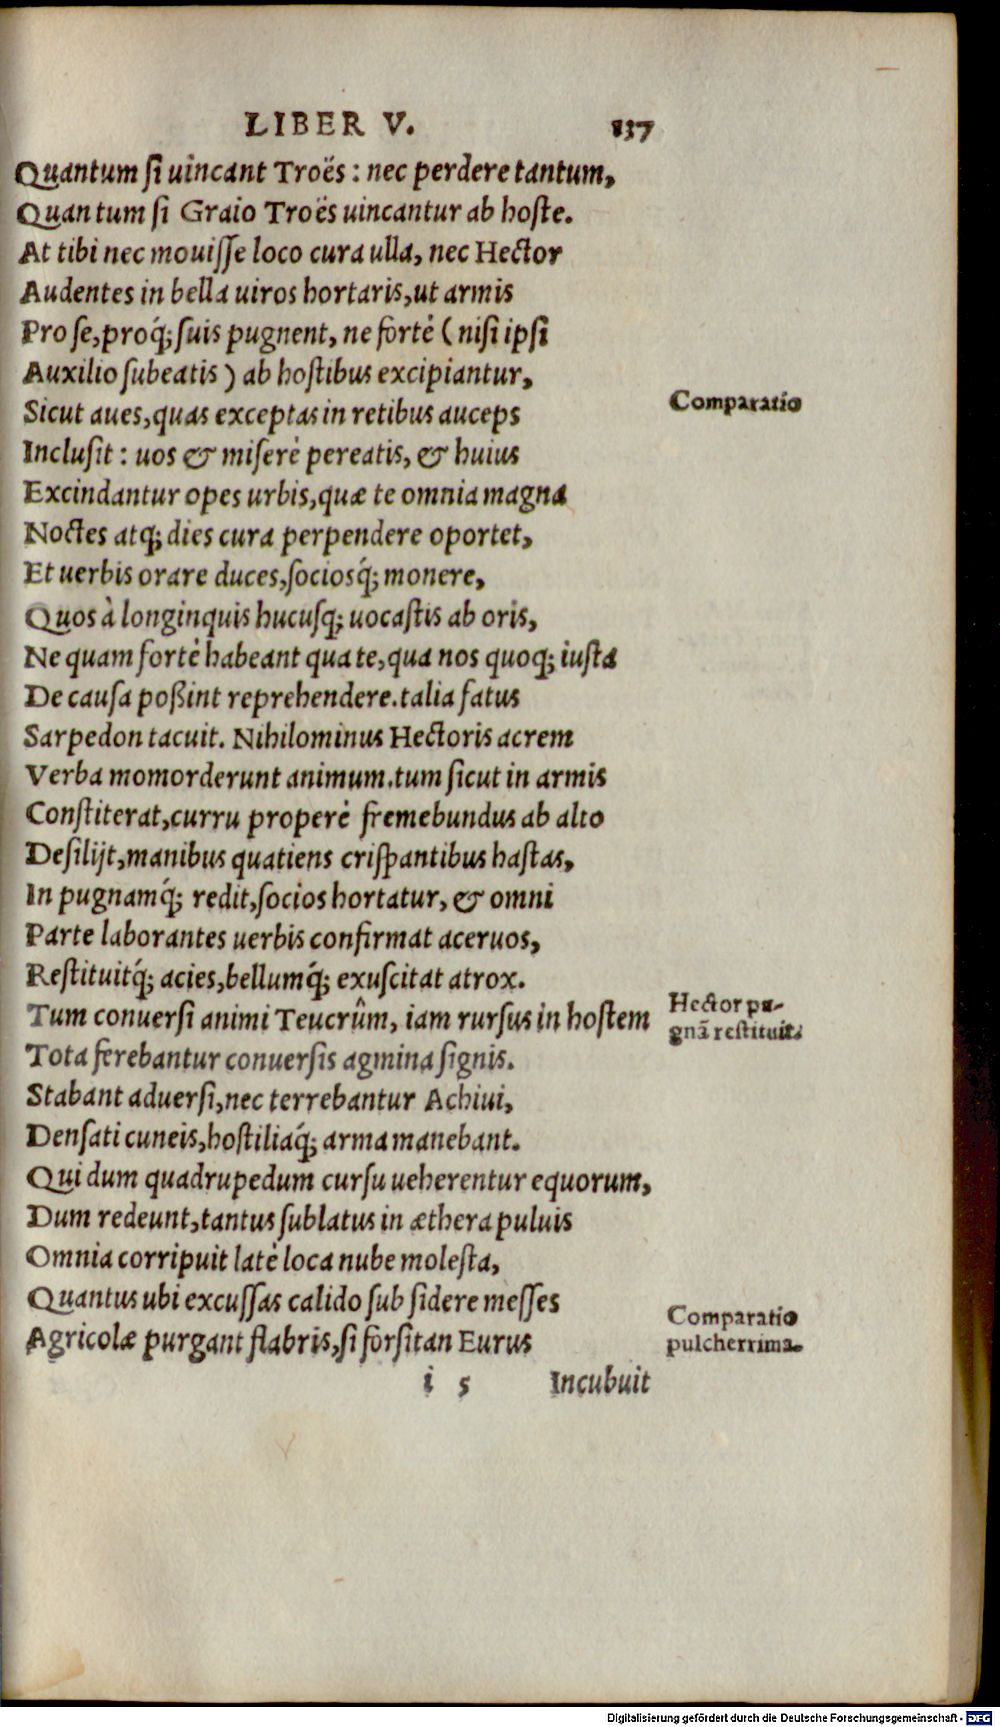 LIBER V. 137
Quantum ſi uincant Troës: nec perdere tantum,
Quantum ſi Graio Troës uincantur ab hoſte.
At tibi nec mouiſſe loco cura ulla, nec Hector
Audentes in bella uiros hortaris, ut armis
Pro ſe, proq́; ſuis pugnent, ne fortè (niſi ipſi
Auxilio ſubeatis) ab hoſtibus excipiantur,
Sicut aues, quas exceptas in retibus auceps
Comparatio
Incluſit: uos & miſerè pereatis, & huius
Excindantur opes urbis, quæ te omnia magna
Noctes atq; dies cura perpendere oportet,
Et uerbis orare duces, ſociosq́; monere,
Quos à longinquis hucuſq; uocaſtis ab oris,
Ne quam fortè habeant qua te, qua nos quoq; iuſta
De cauſa poßint reprehendere. talia fatus
Sarpedon tacuit. Nihilominus Hectoris acrem
Verba momorderunt animum. tum ſicut in armis
Conſtiterat, curru properè fremebundus ab alto
Deſilijt, manibus quatiens criſpantibus haſtas,
In pugnamq́; redit, ſocios hortatur, & omni
Parte laborantes uerbis confirmat aceruos,
Reſtituitq́; acies, bellumq́; exuſcitat atrox.
Tum conuerſi animi Teucrûm, iam rurſus in hoſtem
Hector pu-
gnā reſtituit.
Tota ferebantur conuerſis agmina ſignis.
Stabant aduerſi, nec terrebantur Achiui,
Denſati cuneis, hoſtiliaq́; arma manebant.
Qui dum quadrupedum curſu ueherentur equorum,
Dum redeunt, tantus ſublatus in æthera puluis
Omnia corripuit latè loca nube moleſta,
Quantus ubi excuſſas calido ſub ſidere meſſes
Agricolæ purgant flabris, ſi forſitan Eurus
Comparatio
pulcherrima.
i 5 Incubuit
Digitalisierung gefördert durch die Deutsche Forschungsgemeinschaft - DFG